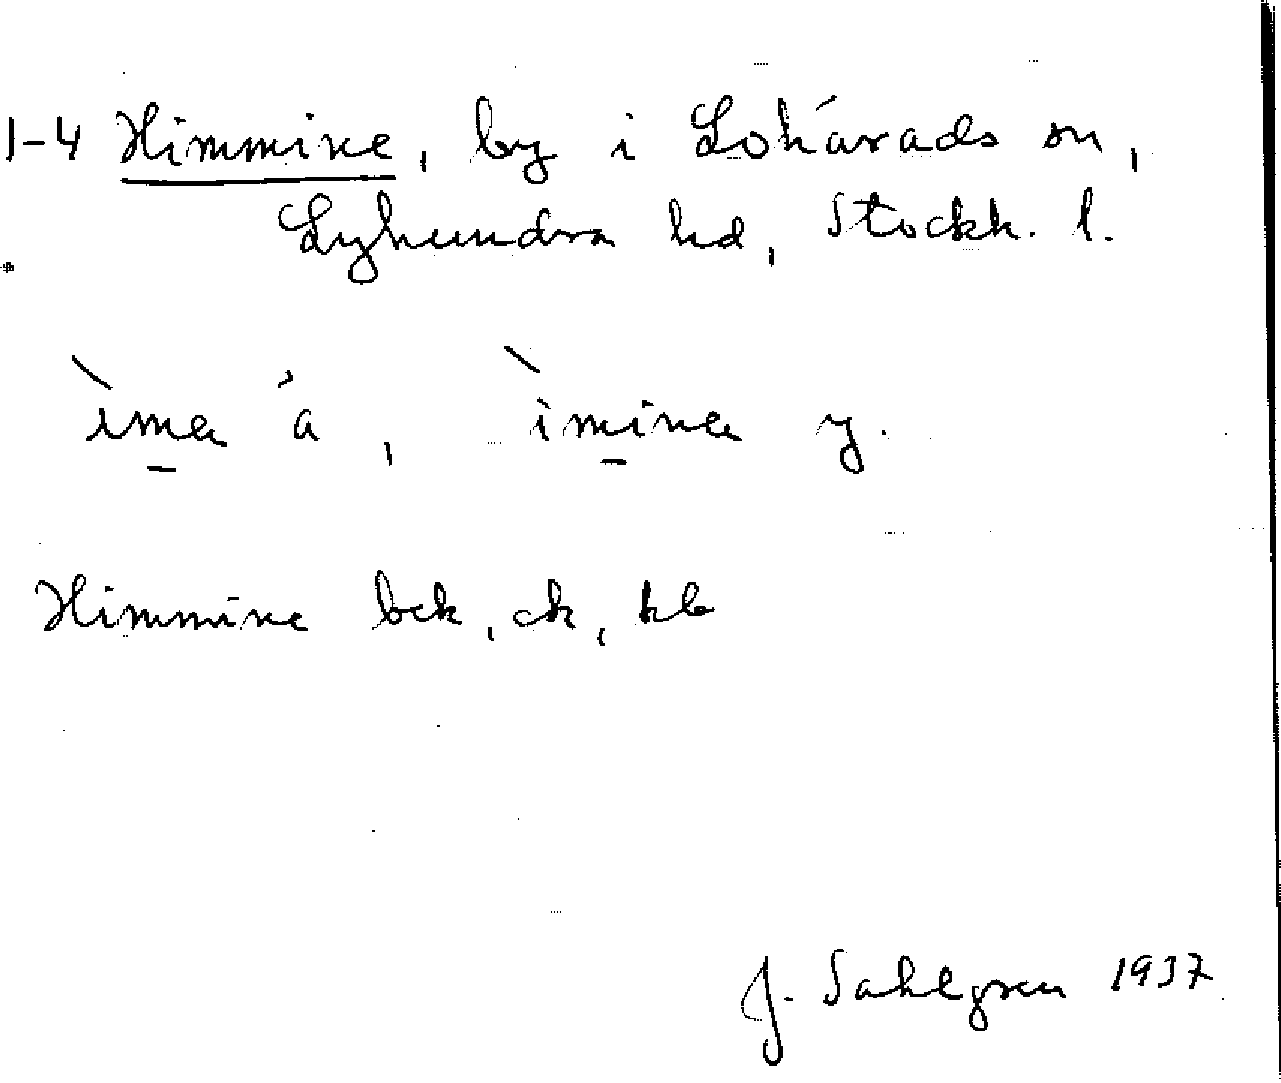 1-4 Himmine, by i Lohärads sn,
Lyhundra hd, Stockh. l.
ìma å, ìmina y.
Himmine bek, ek, kb
J. Sahlgren 1937